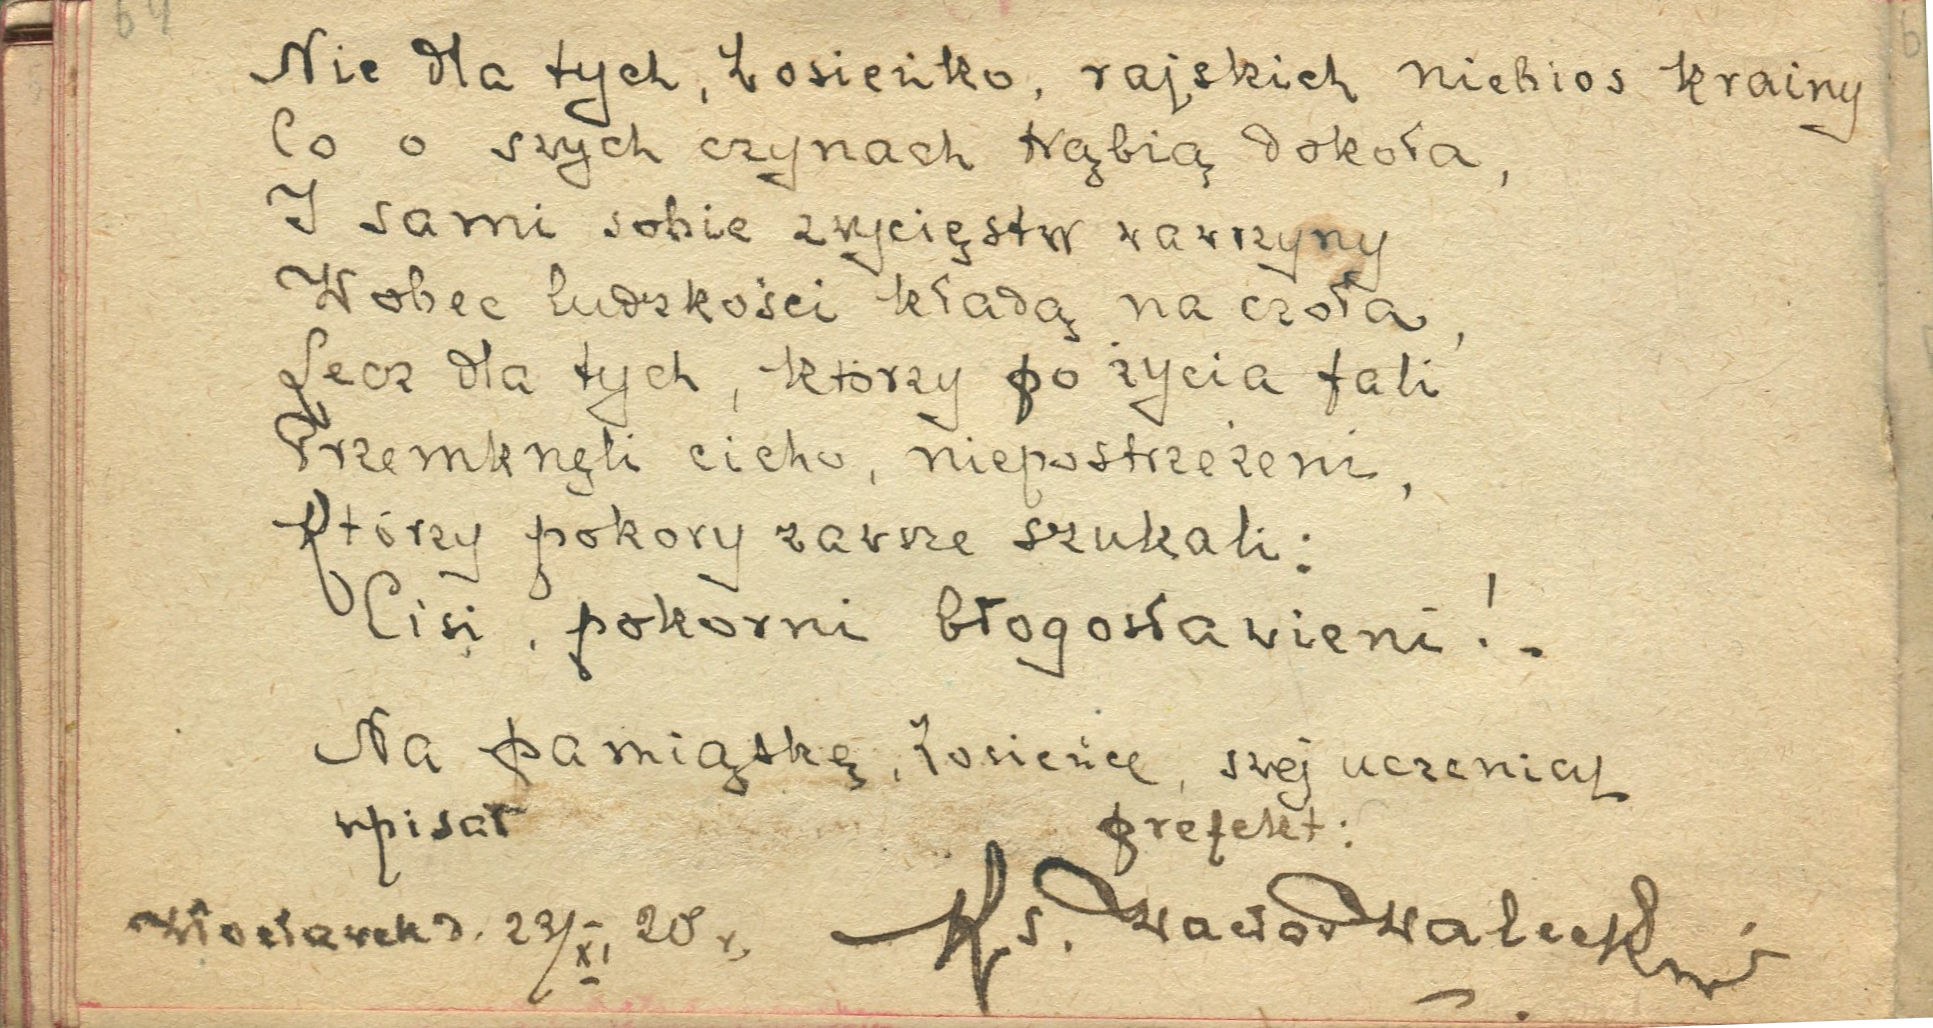 64
Nie dla tych, Zosieńko, rajskich niebios krainy
Co o swych czynach trąbią dokoła,
I sami sobie zwycięstw wawrzyny
Wobec ludzkości kładą na czoła,
Lecz dla tych, którzy po życia fali
Przemknęli cicho, niepostrzeżeni,
Którzy pokory zawsze szukali:
Cisi, pokorni błogosławieni!-
Na pamiątkę, Zosieńce, swej uczenicy
wpisał prefekt:
Włocławek d. 23/XI 20 r. Ks. Wacław Walecki